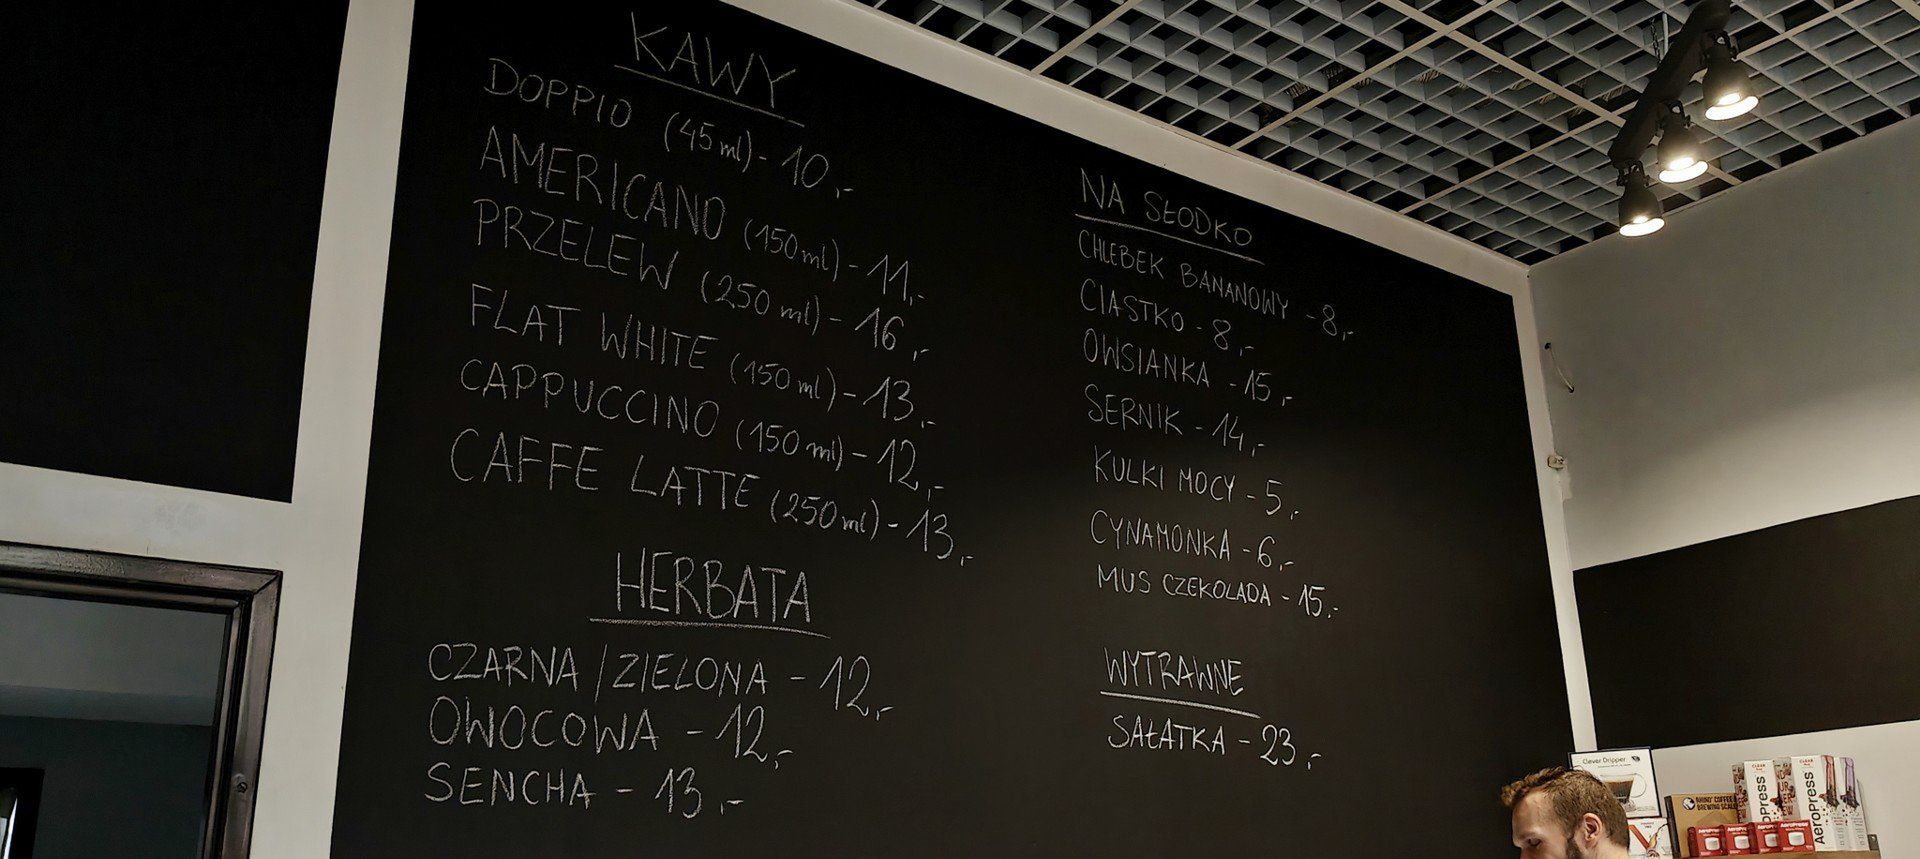 KAWY
DOPPIO (45ml) - 10,-
AMERICANO (150ml) - 11,-
PRZELEW (250ml) - 16,-
FLAT WHITE (150ml) - 13,-
CAPPUCCINO (150ml) - 12,-
CAFFE LATTE (250ml) - 13,-
HERBATA
CZARNA/ZIELONA - 12,-
OWOCOWA - 12,-
SENCHA - 13,-
NA SŁODKO
CHLEBEK BANANOWY - 8,-
CIASTKO - 8,-
OWSIANKA - 15,-
SERNIK - 14,-
KULKI MOCY - 5,-
CYNAMONKA - 6,-
MUS CZEKOLADA - 15,-
WYTRAWNE
SAŁATKA - 23,-
Clever Dripper
RHINO COFFEE
BREWING SCALE
CLEAR
AeroPress
CLEAR
AeroPress